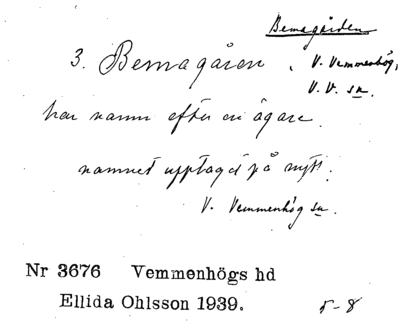 Bemagården
3. Bemagåren. V. Vemmenhög,
V. V. sn.
har namn efter en ägare.
namnet upptaget på nytt.
V. Vemmenhög sn.
Nr 3676 Vemmenhögs hd
Ellida Ohlsson 1939.
5-8